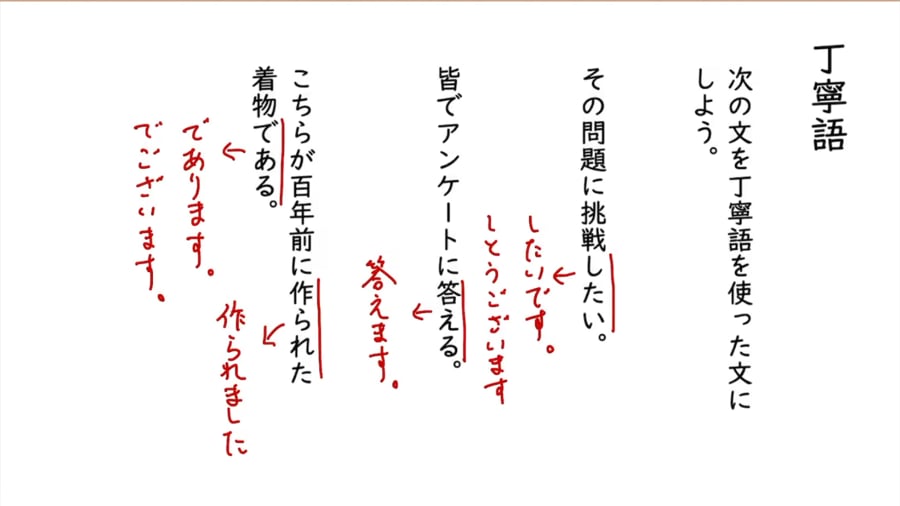 丁寧語
次の文を丁寧語を使った文に
しよう。
その問題に挑戦したい。
したいです。
しとうございます
皆でアンケートに答える。
答えます。
こちらが百年前に作られた
着物である。
作られました
であります。
でございます。